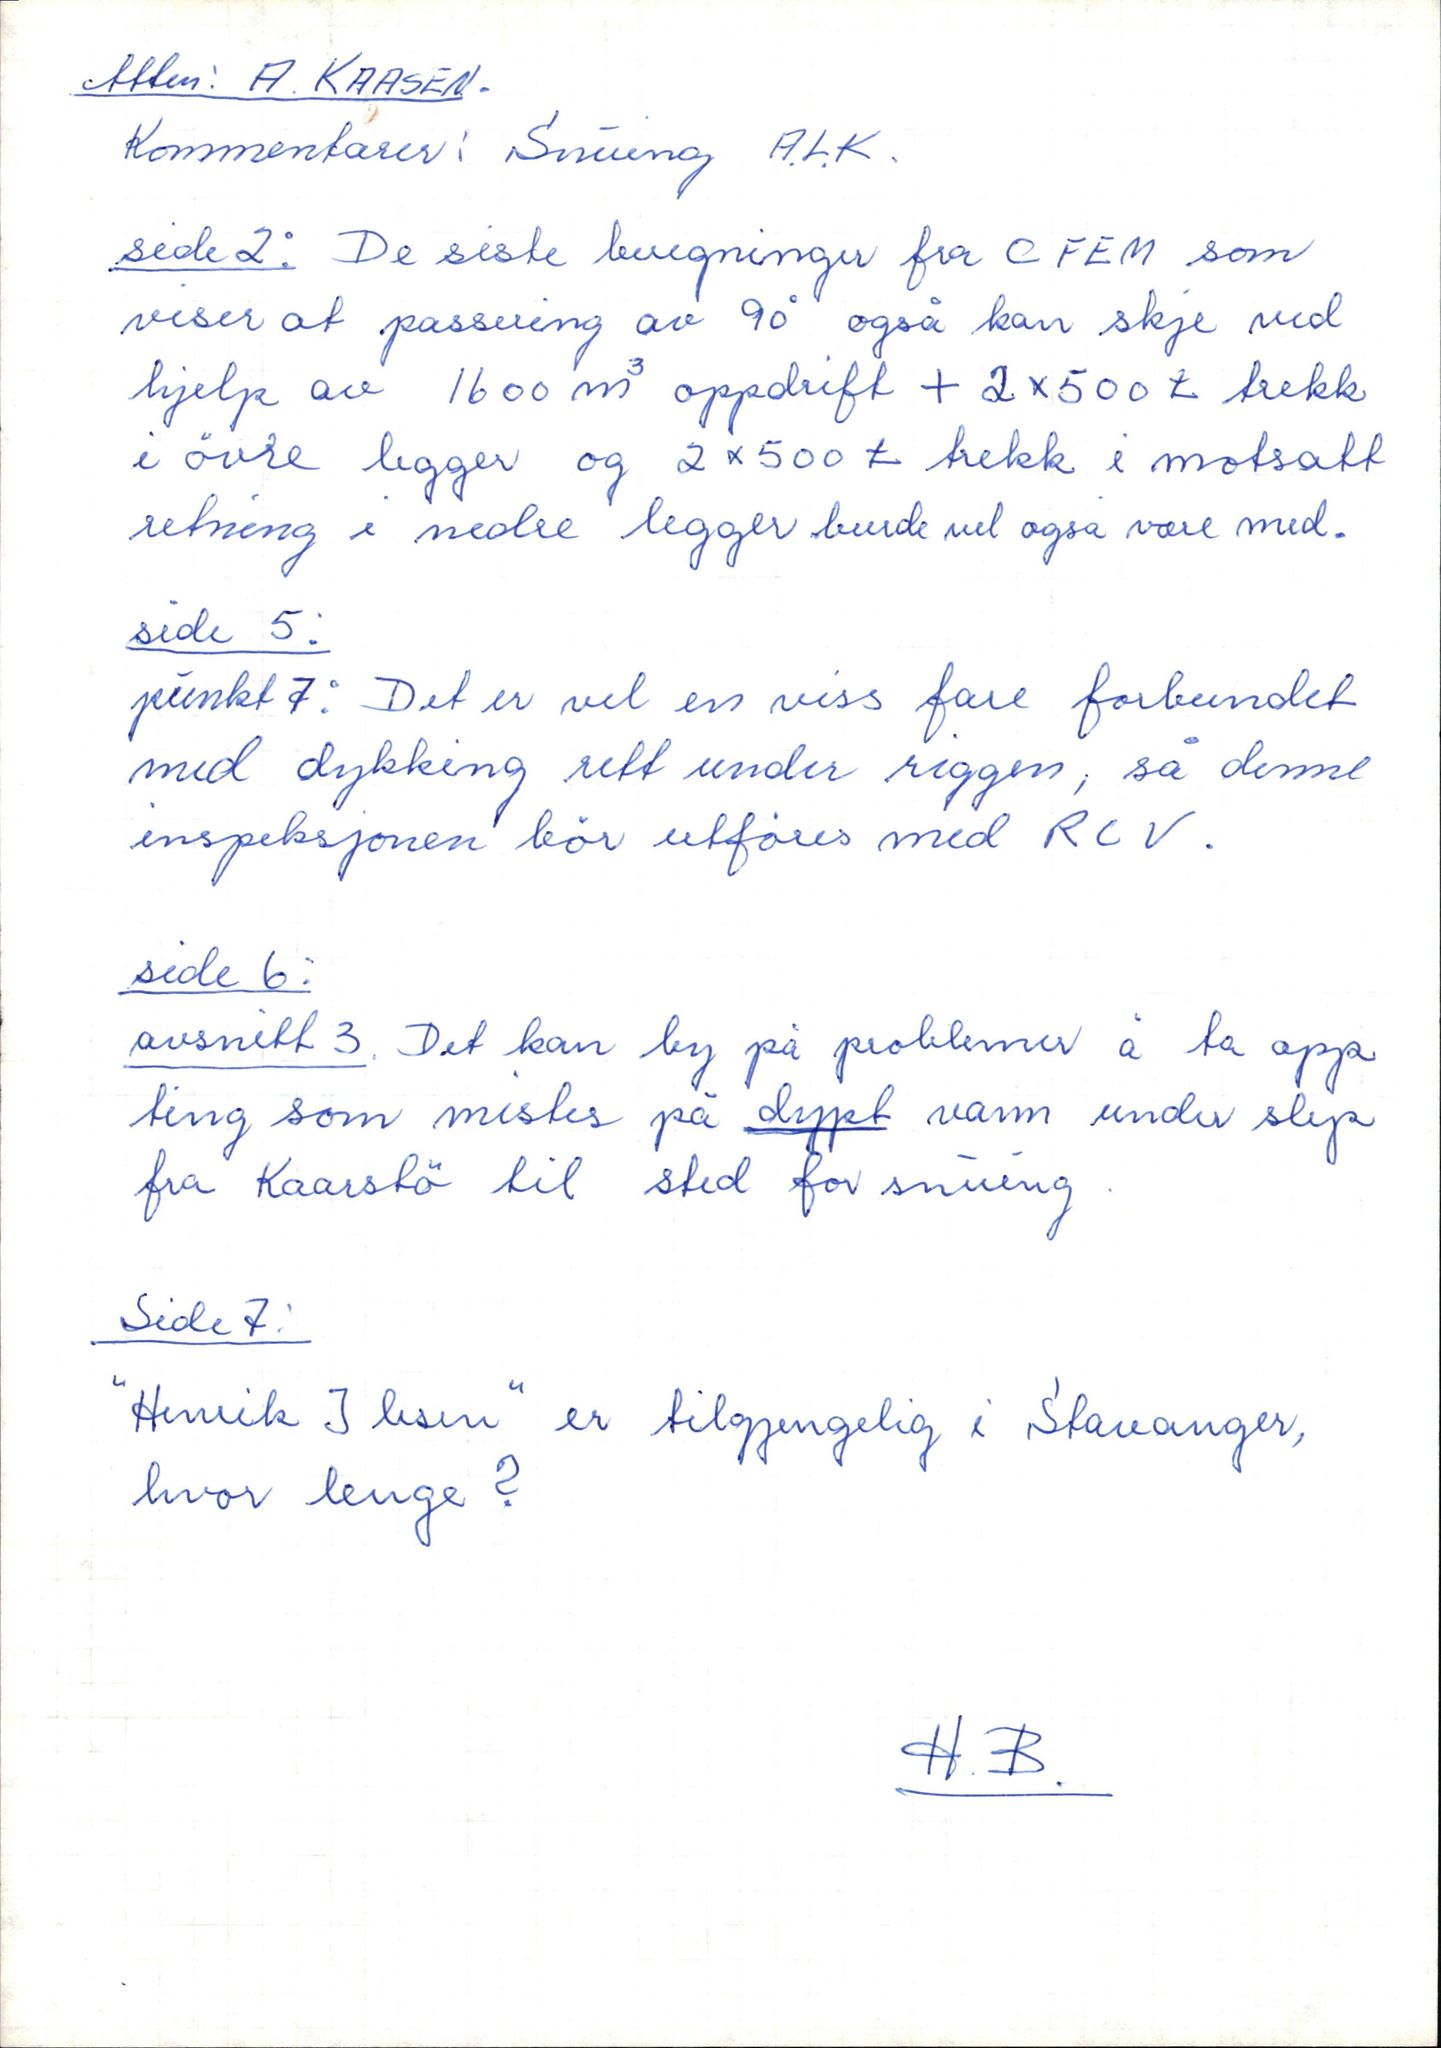 Atten: A. KAASEN.
Kommentarer: Snuing A.L.K.
side 2: De siste beregninger fra CFEM som
viser at passering av 90° også kan skje ved
hjelp av 1600 m³ oppdrift + 2 x 500 t trekk
i övre legger og 2 x 500 t trekk i motsatt
retning i nedre legger burde vel også være med.
side 5:
punkt 7: Det er vel en viss fare forbundet
med dykking rett under riggen, så denne
inspeksjonen bör utföres med RCV.
side 6:
avsnitt 3. Det kan by på problemer å ta opp
ting som mistes på dypt vann under slep
fra Kaarstö til sted for snuing.
Side 7:
"Henrik Ibsen" er tilgjengelig i Stavanger,
hvor lenge?
H.B.